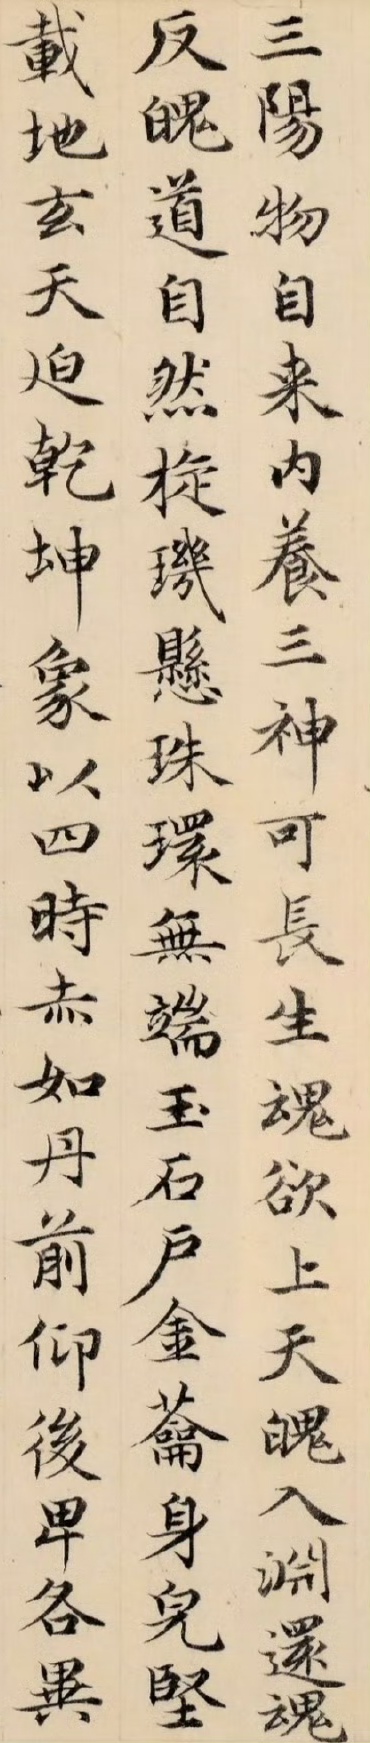 三陽物自来内養三神可長生魂欲上天魄入淵還魂
反魄道自然旋璣懸珠環無端玉石戶金蘥身皃堅
載地玄天迫乾坤象以四時赤如丹前仰後卑各異